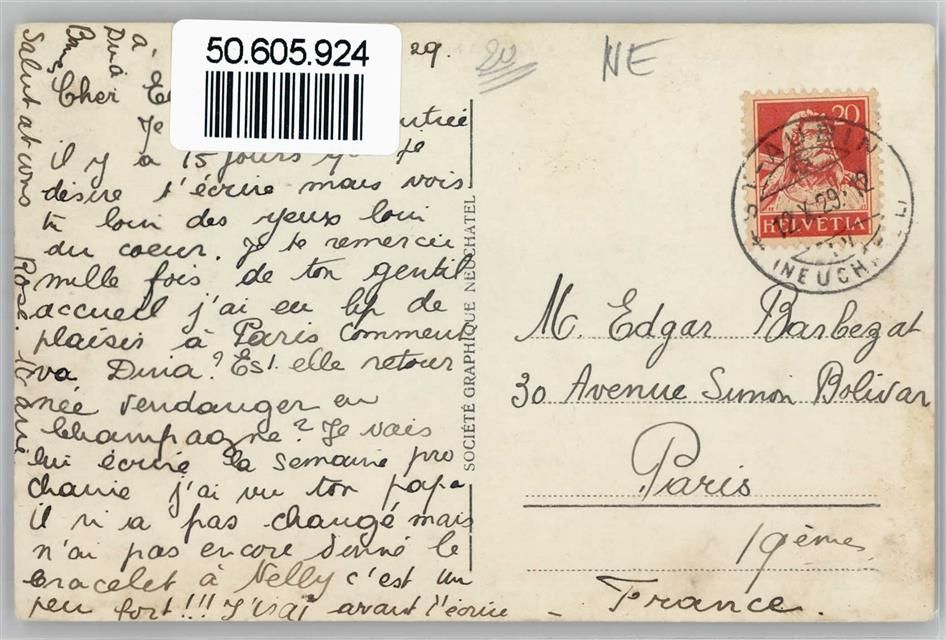 50.605.924
29.
20
NE
Cher
Je
il y a 15 jours que je
désire t'écrire mais vois
tu loin des yeux loin
du coeur. Je te remercie
mille fois de ton gentil
accueil j'ai eu bp de
plaisir à Paris Comment
va Dina? Est elle retour
née vendanger en
Champagne? Je vais
lui écrire la semaine pro
chaine j'ai vu ton papa
il n'a pas changé mais
n'ai pas encore donné le
bracelet à Nelly c'est un
peu fort!!! J'irai avant l'écrire
Salut at vous
Rose.
à
Dina
SOCIÉTÉ GRAPHIQUE NEUCHATEL
20
HELVETIA
ST-AUBIN
12.X.29.12
(NEUCHÂTEL)
M. Edgar Barbezat
30 Avenue Simon Bolivar
Paris
19ème
France.